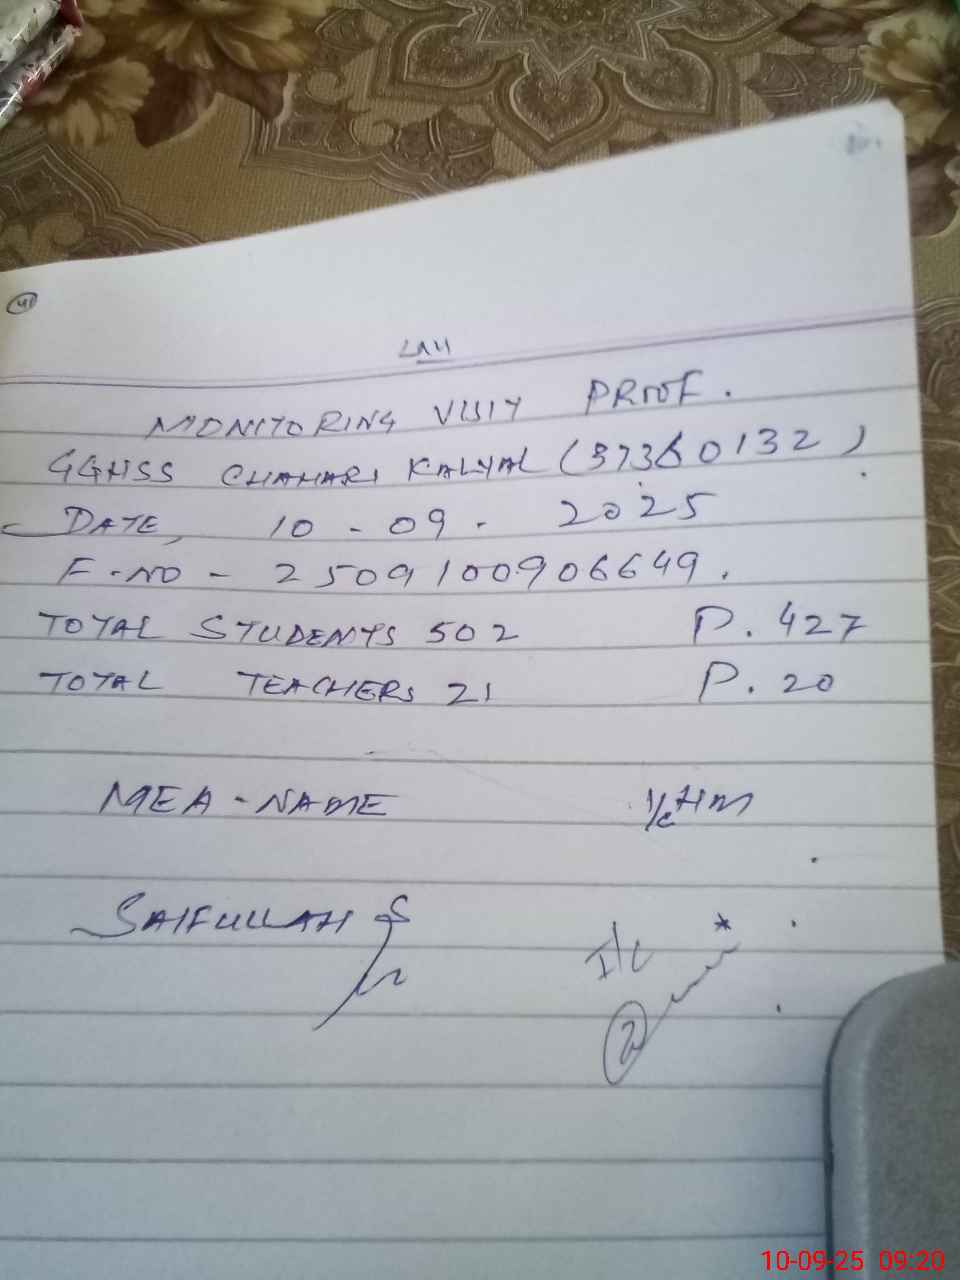 41
LAH
MONITORING VISIT PROOF.
GGHSS CHAHARI KALYAL (37360132)
DATE, 10 - 09 - 2025
F-NO - 2509100906649.
TOTAL STUDENTS 502 P. 427
TOTAL TEACHERS 21 P. 20
MEA - NAME I/c HM
SAIFULLAH
I/C
10-09-25 09:20